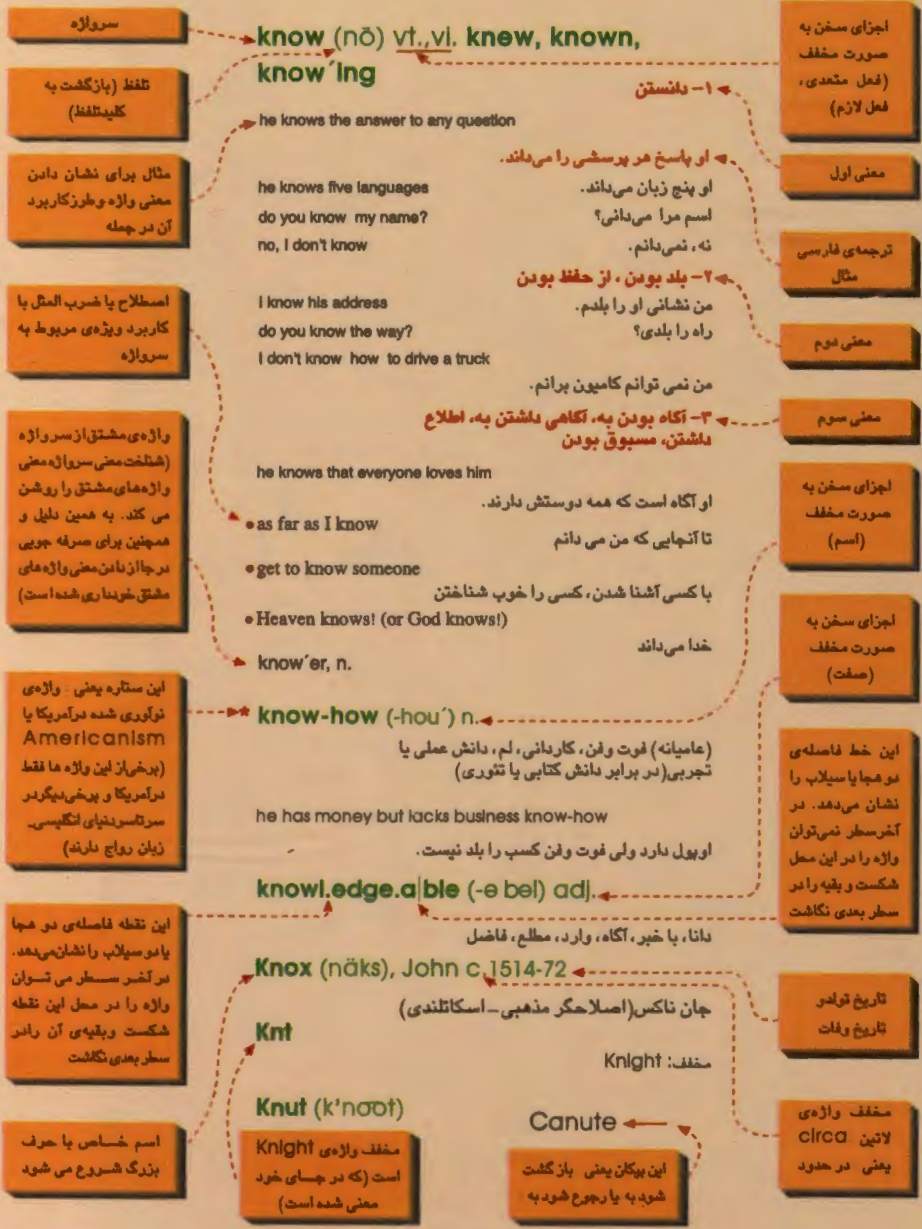 سرواژه
تلفظ (بازگشت به
کلیدتلفظ)
مثال برای نشان دادن
معنی واژه وطرزکاربرد
آن در جمله
اصطلاح یا ضرب المثل با
کاربرد ویژه‌ی مربوط به
سرواژه
واژه‌ی مشتق از سرواژه
(شناخت معنی سرواژه معنی
واژه‌های مشتق را روشن
می کند. به همین دلیل و
همچنین برای صرفه جویی
درجا از دادن معنی واژه های
مشتق خودداری شده است)
این ستاره یعنی : واژه‌ی
نوآوری شده درآمریکا یا
Americanism
(برخی‌از این واژه ها فقط
درآمریکا و برخی‌دیگردر
سرتاسردنیای انگلیسی_
زبان رواج دارند)
این نقطه فاصله‌ی دو هجا
یادو سیلاب را نشان‌می‌دهد.
در آخـر سـطر می تـوان
واژه را در محل این نقطه
شکست وبقیه‌ی آن رادر
سطر بعدی نگاشت
اسم خـاص با حرف
بزرگ شـروع می شود
know (nō) vt.,vi. knew, known,
know´ing
۱- دانستن
he knows the answer to any question
او پاسخ هر پرسشی را می‌داند.
he knows five languages او پنج زبان می‌داند.
do you know my name? اسم مرا می‌دانی؟
no, I don't know نه، نمی‌دانم.
۲- بلد بودن ، از حفظ بودن
I know his address من نشانی او را بلدم.
do you know the way? راه را بلدی؟
I don't know how to drive a truck
من نمی توانم کامیون برانم.
۳- آگاه بودن به، آگاهی داشتن به، اطلاع
داشتن، مسبوق بودن
he knows that everyone loves him
او آگاه است که همه دوستش دارند.
• as far as I know
تا آنجایی که من می دانم
• get to know someone
با کسی آشنا شدن، کسی را خوب شناختن
• Heaven knows! (or God knows!)
خدا می‌داند
know´er, n.
* know-how (-hou´) n.
(عامیانه) فوت وفن، کاردانی، لم، دانش عملی یا
تجربی(در برابر دانش کتابی یا تئوری)
he has money but lacks business know-how
اوپول دارد ولی فوت وفن کسب را بلد نیست.
knowl.edge.a|ble (-ə bəl) adj.
دانا، با خبر، آگاه، وارد، مطلع، فاضل
Knox (näks), John c.1514-72
جان ناکس(اصلاحگر مذهبی_اسکاتلندی)
Knt
مخفف: Knight
Knut (k'nōōt)
Canute ←
مخفف واژه‌ی Knight
است (که در جـای خود
معنی شده است)
این پیکان یعنی بازگشت
شود به یا رجوع شود به
اجزای سخن به
صورت مخفف
(فعل متعدی،
فعل لازم)
معنی اول
ترجمه‌ی فارسی
مثال
معنی دوم
معنی سوم
اجزای سخن به
صورت مخفف
(اسم)
اجزای سخن به
صورت مخفف
(صفت)
این خط فاصله‌ی
دو هجا یا سیلاب را
نشان می‌دهد. در
آخرسطر نمی‌توان
واژه را در این محل
شکست و بقیه را در
سطر بعدی نگاشت
تاریخ تولدو
تاریخ وفات
مخفف واژه‌ی
لاتین circa
یعنی در حدود